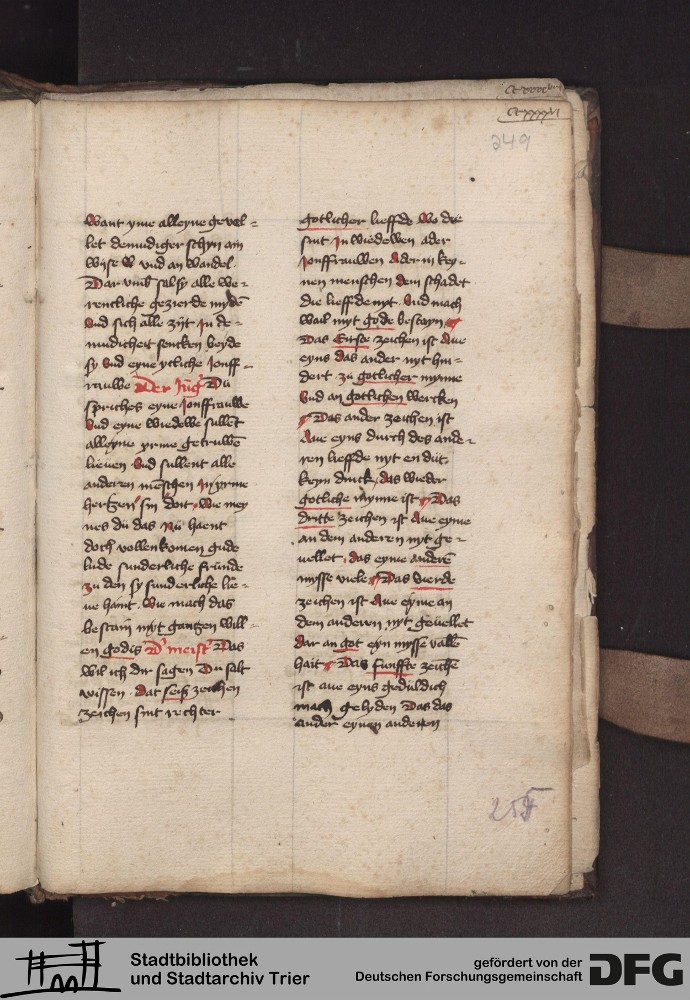 249
want yme alleyne gevel=
let demudiger schyn am
wyse vnd an wandel.
Dar vmb sal sy alle we=
rentliche gezierde myden
vnd sich alle zijt in de=
mudicheit sencken beyde
sy vnd eyne ytliche jonff=
rauwe Der Jung Du
spriches eyne jonffrauwe
vnd eyne wiedewe sullent
alleyne yrme getruwen
lieuen vnd sullent alle
anderen menschen in yrme
hertzen sin doit, wie mey
nes du das Nu haent
doch vollenkomen gude
lude sunderliche frunde
zu den sy sunderliche lie=
ue haint. wie mach das
bestain myt gantzen will=
en godis D' meist' Das
wil ich dir sagen Du salt
wissen. dat seiß zeichen
zeichen sint rechter
gotlicher lieffde wo die
sint in wiedewen ader
jonffrauwen Ader in key=
nen menschen dem schadet
die lieffde nyt vnd mach
wail myt gode besteyn
Das Eirste zeichen ist Aue
eyns das ander nyt hin=
dert zu gotlicher mynne
vnd an gotlichen wercken
Das ander zeichen ist
Aue eyns durch des ande=
ren lieffde nyt en dut.
keyn dinck, das wieder
gotliche mynne ist Das
dritte zeichen ist Aue eyme
an dem anderen nyt ge=
uellet, das eyme anderen
mysse viele Das vierde
zeichen ist Aue eyme an
dem anderen nyt geuellet
dar an got eyn mysse vallen
hait Das funffte zeichen
ist aue eyns geduldich
mach gelyden Das das
ander eynen anderen
Stadtbibliothek
und Stadtarchiv Trier
gefördert von der
Deutschen Forschungsgemeinschaft
DFG